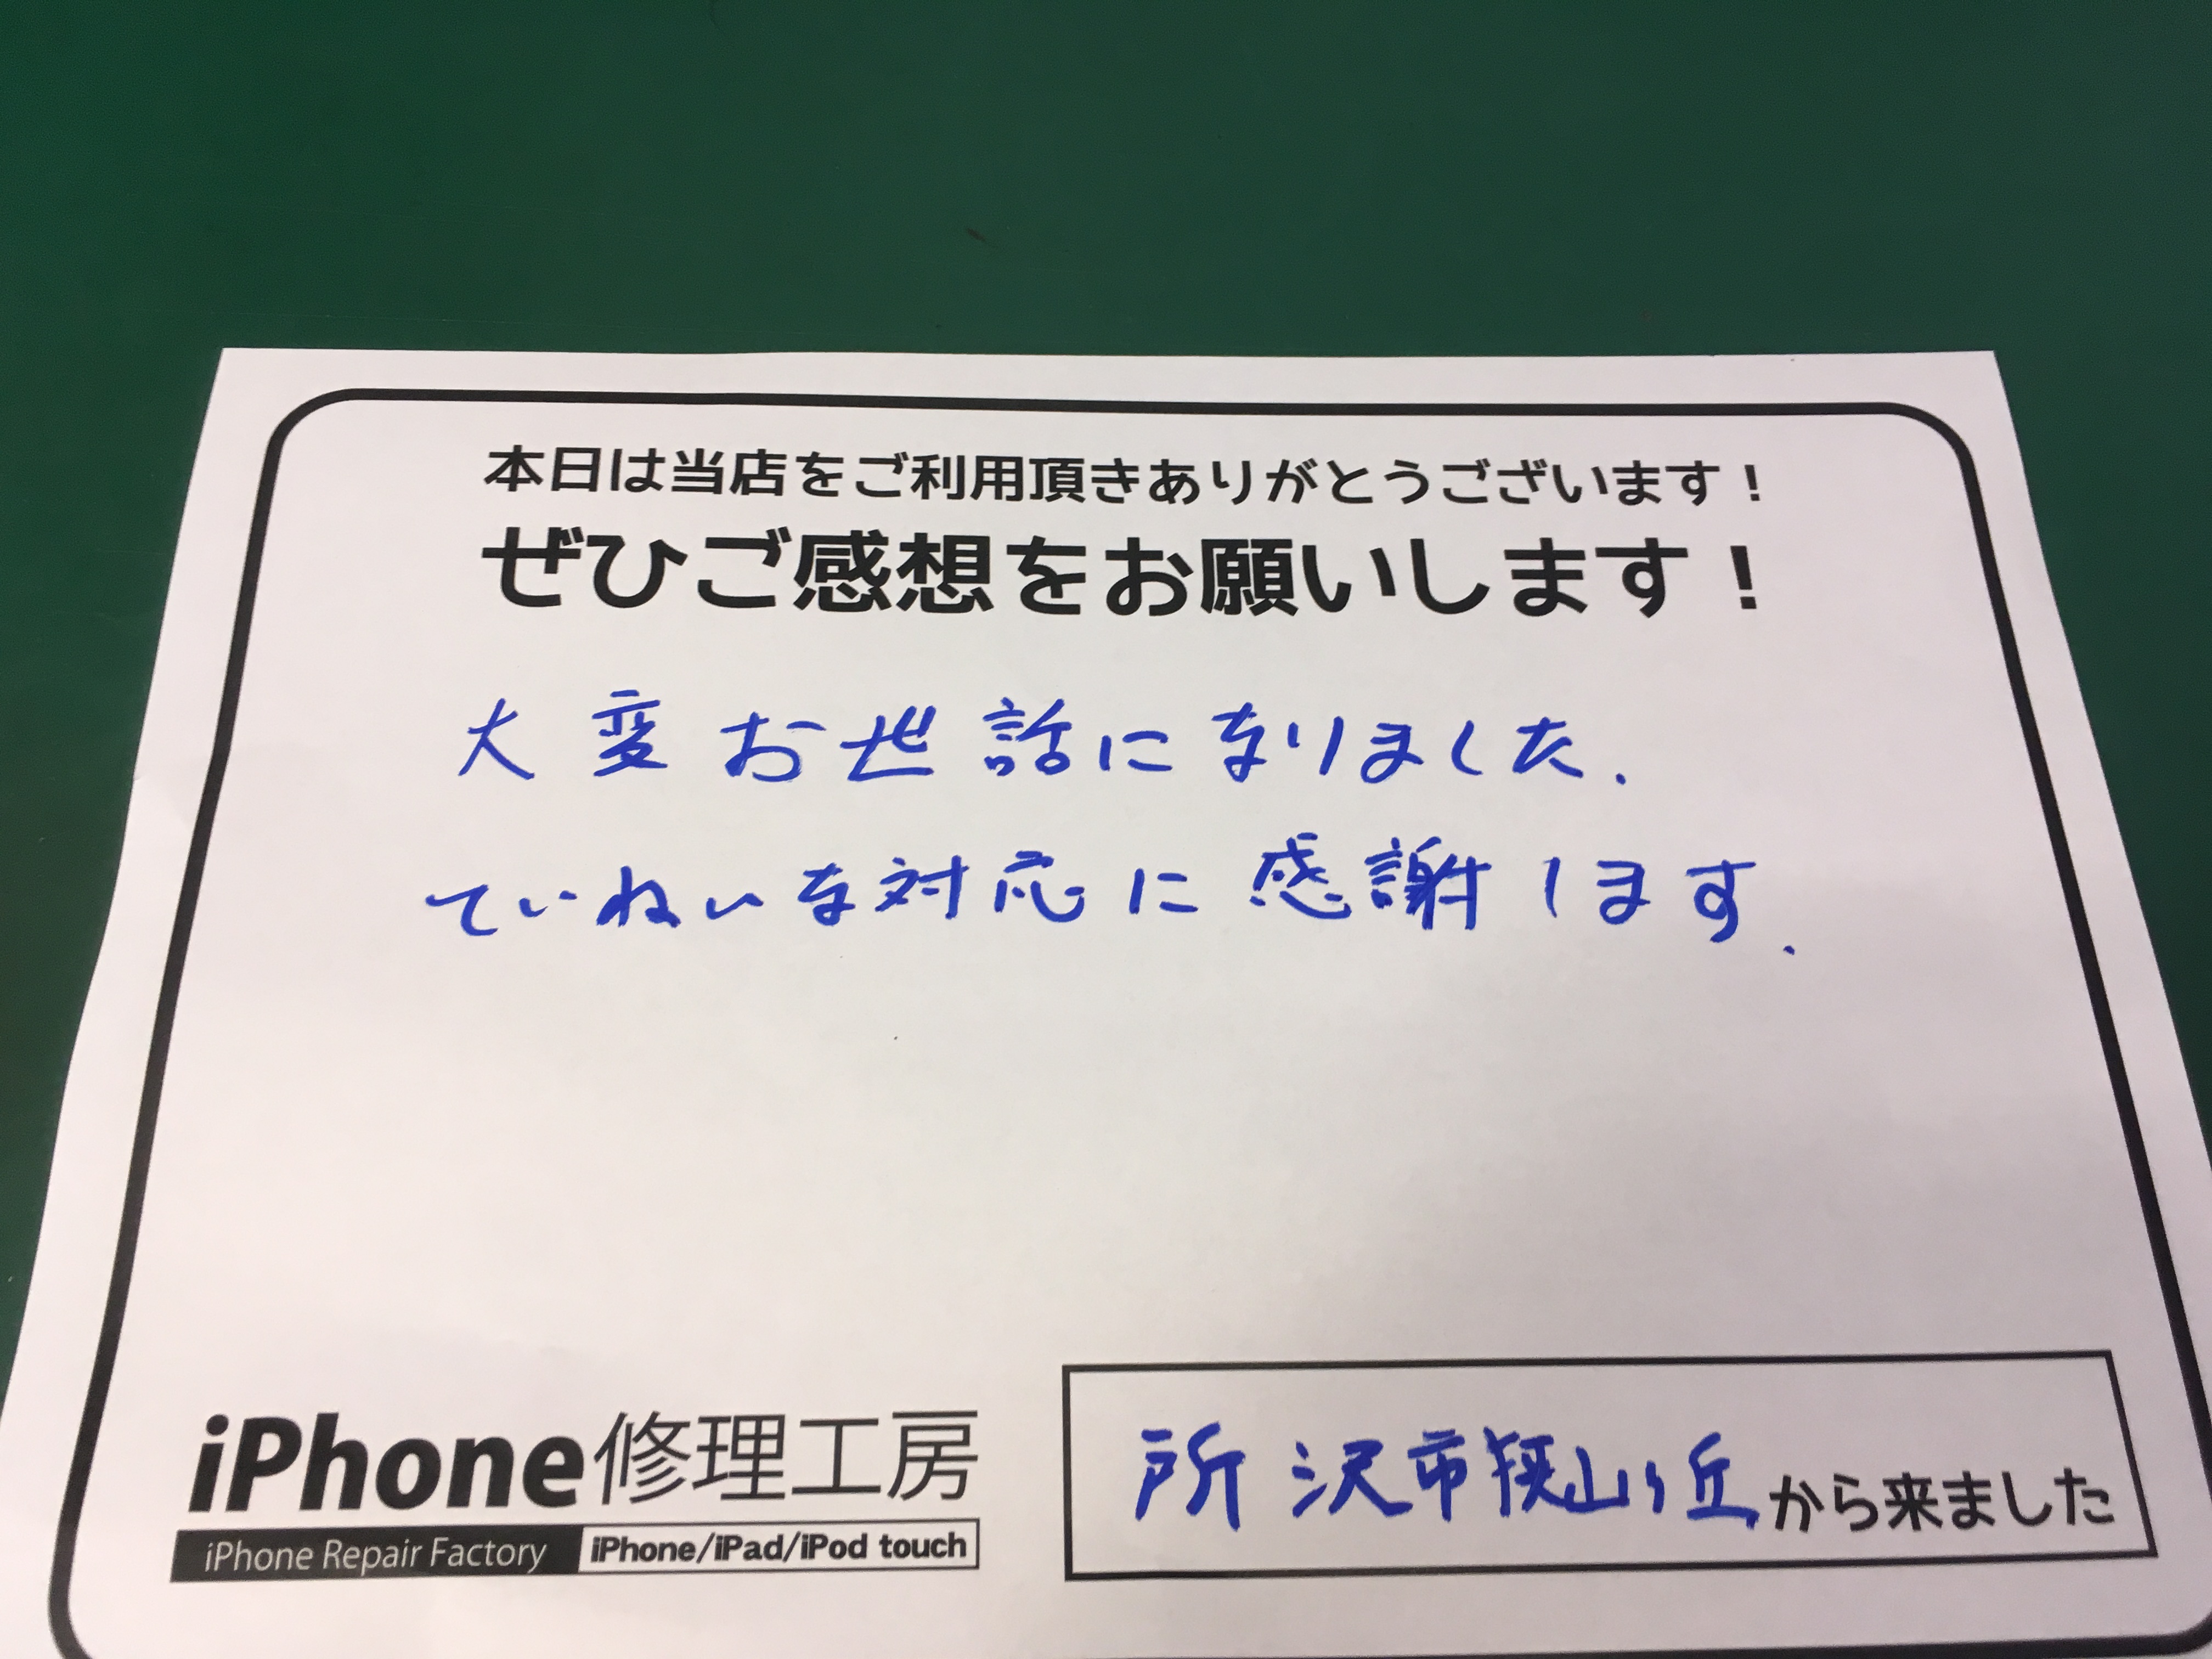 本日は当店をご利用頂きありがとうございます！
ぜひご感想をお願いします！
大変お世話になりました.
ていねいな対応に感謝します.
iPhone修理工房
iPhone Repair Factory iPhone/iPad/iPod touch
所沢市狭山ヶ丘から来ました